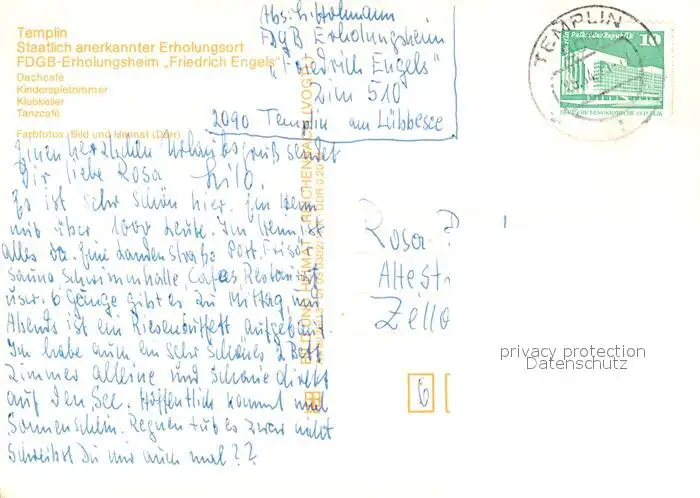 Templin
Staatlich anerkannter Erholungsort
FDGB-Erholungsheim „Friedrich Engels"
Dachcafé
Kinderspielzimmer
Klubkeller
Tanzcafé
Farbfotos: Bild und Heimat (Dörr)
FDGB Erholungsheim
"Friedrich Engels"
Zim 510
2090 Templin am Lübbesee
TEMPLIN
Palast der Republik
10
DEUTSCHE DEMOKRATISCHE REPUBLIK
BILD UND HEIMAT REICHENBACH (VOGTL)
Einen herzlichen Urlaubsgruß sendet
Dir liebe Rosa Lilo.
Es ist sehr schön hier. Ein Heim
mit über 1000 Leute. Im Heim ist
alles da. Eine Ladenstraße Post, Frisör
Sauna, Schwimmhalle, Cafes, Restaurant
usw. 6 Gänge gibt es zu Mittag, und
Abends ist ein Riesenbüffett aufgebaut.
Ich habe auch ein sehr schönes 2 Bett
Zimmer alleine und schaue direkt
auf den See. Hoffentlich kommt mal
Sonnenschein. Regnen tut es zwar nicht
Schreibst Du mir auch mal??
Rosa
Altestr
Zello
6
privacy protection
Datenschutz